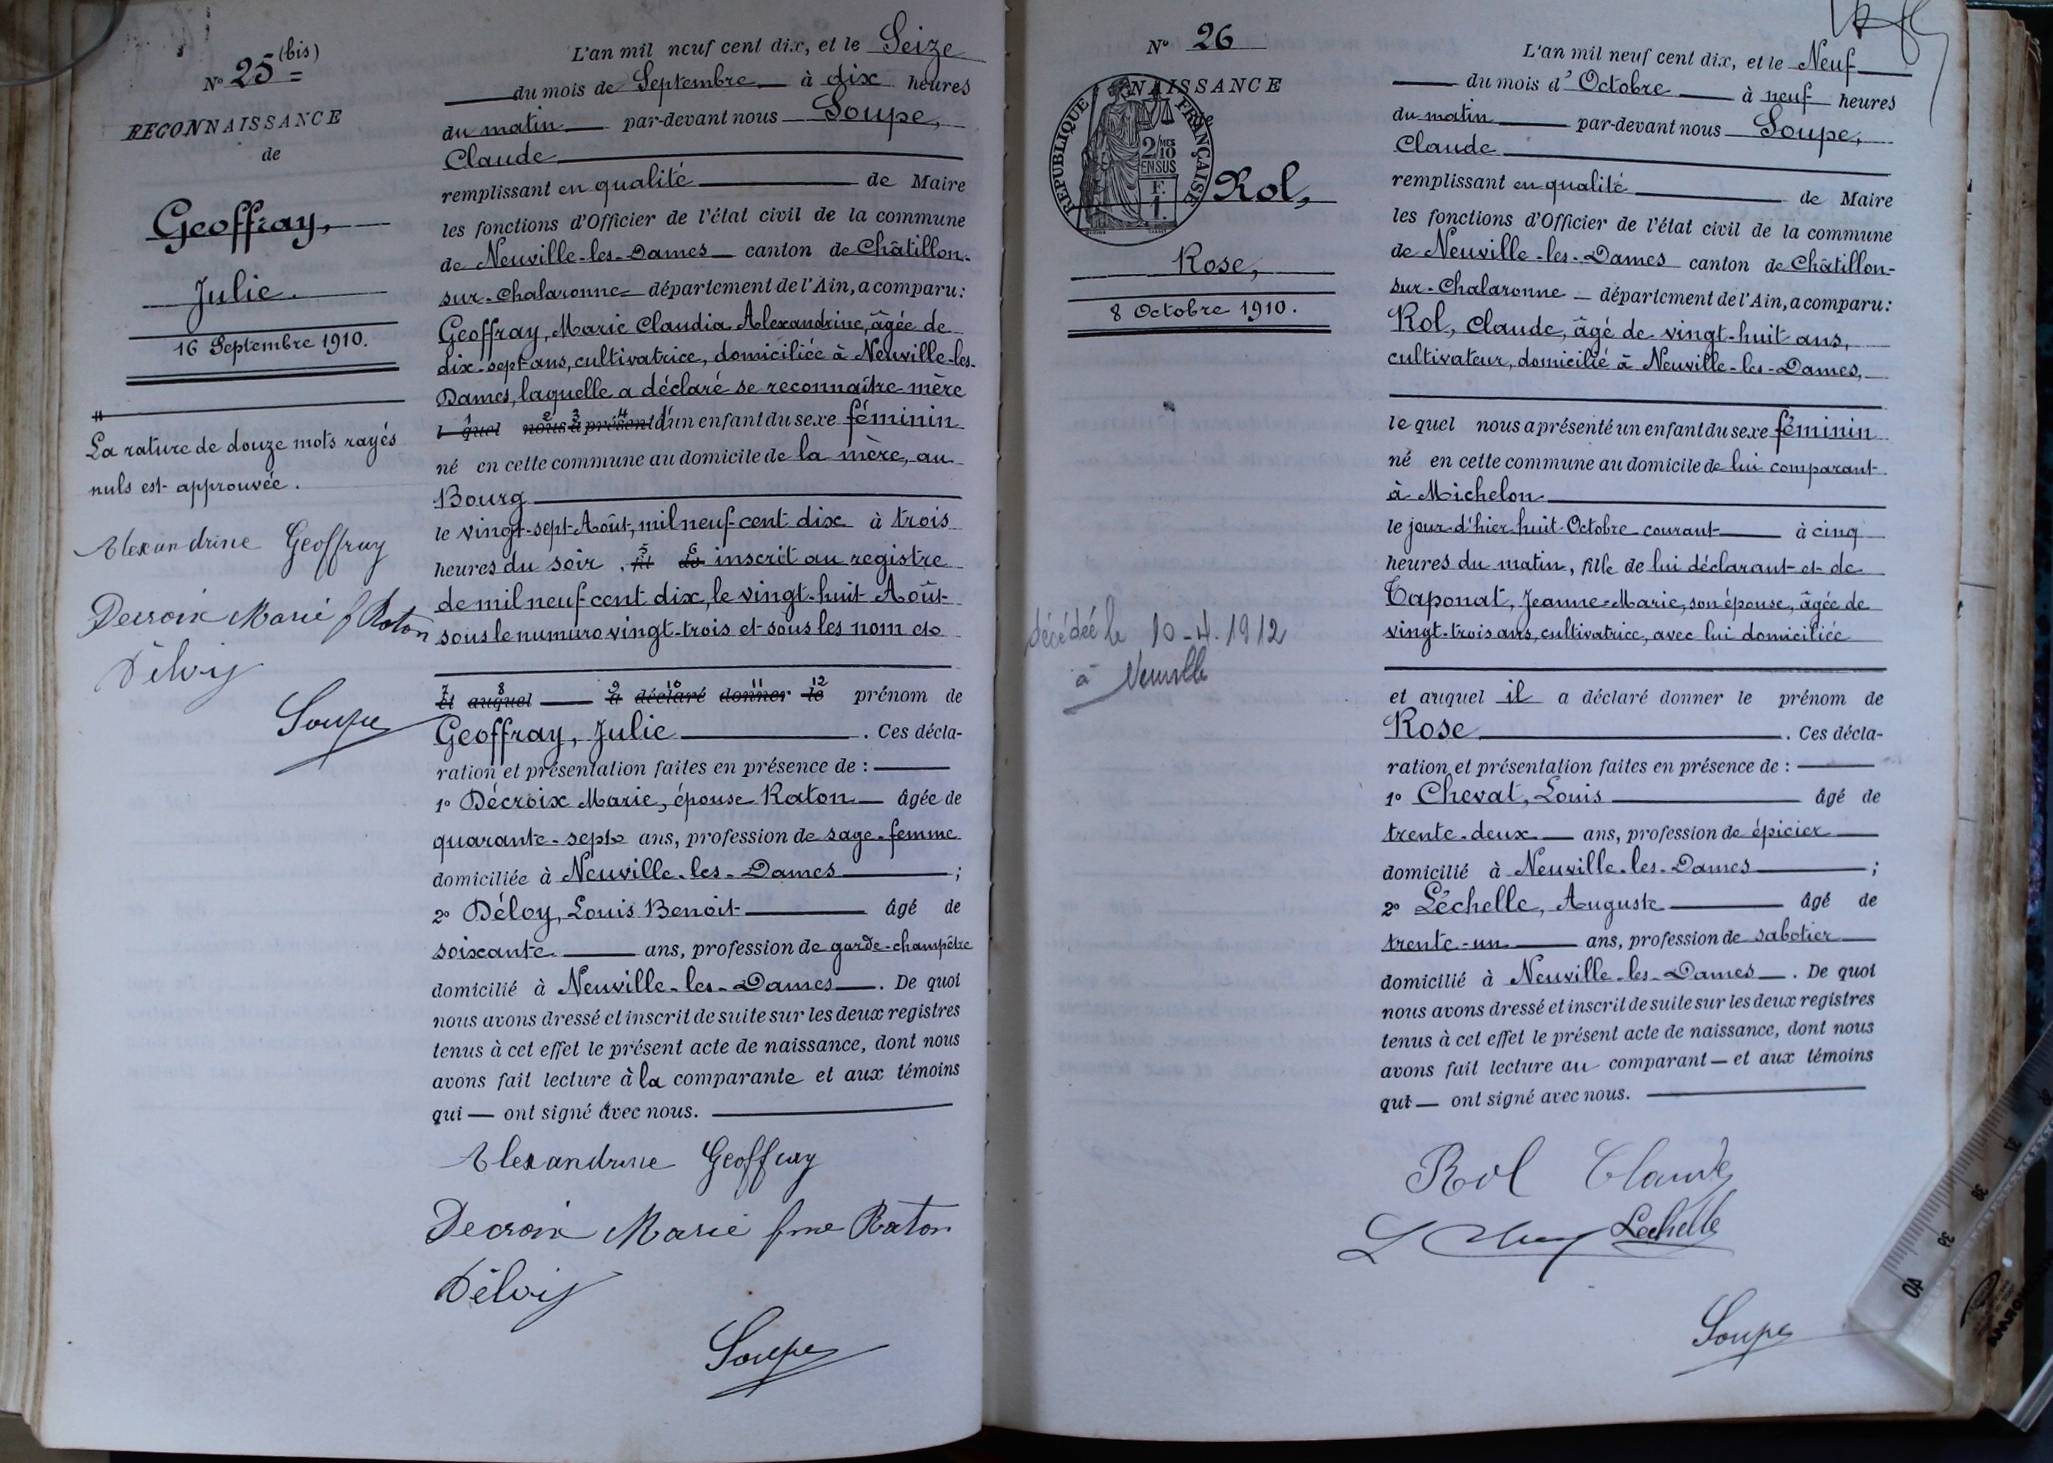 N° 25 (bis)
RECONNAISSANCE
de
Geoffray,
Julie.
16 Septembre 1910.
La rature de douze mots rayés
nuls est approuvée.
Alexandrine Geoffray
Decroix Marie f Raton
Déloy
Soupe
L'an mil neuf cent dix, et le Seize
du mois de Septembre à dix heures
du matin par-devant nous Soupe,
Claude
remplissant en qualité de Maire
les fonctions d'Officier de l'état civil de la commune
de Neuville-les-Dames canton de Châtillon-
sur-Chalaronne département de l'Ain, a comparu:
Geoffray, Marie Claudia Alexandrine, âgée de
dix-sept ans, cultivatrice, domiciliée à Neuville-les-
Dames, laquelle a déclaré se reconnaître mère
1 2 3 4
l quel nous a présenté d'un enfant du sexe féminin
né en cette commune au domicile de la mère, au
Bourg
le vingt-sept Août, mil neuf cent dix à trois
5 6
heures du soir, fil de inscrit au registre
de mil neuf cent dix, le vingt-huit Août
sous le numéro vingt-trois et sous les nom et
7 8 9 10 11 12
et auquel a déclaré donner le prénom de
Geoffray, Julie . Ces décla-
ration et présentation faites en présence de :
1° Décroix Marie, épouse Raton âgée de
quarante-sept ans, profession de sage-femme
domiciliée à Neuville-les-Dames ;
2° Déloy, Louis Benoit âgé de
soixante ans, profession de garde-champêtre
domicilié à Neuville-les-Dames . De quoi
nous avons dressé et inscrit de suite sur les deux registres
tenus à cet effet le présent acte de naissance, dont nous
avons fait lecture à la comparante et aux témoins
qui ont signé avec nous.
Alexandrine Geoffray
Decroix Marie fme Raton
Déloy
Soupe
N° 26
NAISSANCE
de
RÉPUBLIQUE FRANÇAISE
2/10
EN SUS
F.
1.
Rol,
Rose,
8 Octobre 1910.
décédée le 10-4-1912
à Neuville
L'an mil neuf cent dix, et le Neuf
du mois d'Octobre à neuf heures
du matin par-devant nous Soupe,
Claude
remplissant en qualité de Maire
les fonctions d'Officier de l'état civil de la commune
de Neuville-les-Dames canton de Châtillon-
sur-Chalaronne département de l'Ain, a comparu:
Rol, Claude, âgé de vingt-huit ans,
cultivateur, domicilié à Neuville-les-Dames,
le quel nous a présenté un enfant du sexe féminin
né en cette commune au domicile de lui comparant
à Michelon
le jour d'hier huit Octobre courant à cinq
heures du matin, fille de lui déclarant et de
Taponat, Jeanne-Marie, son épouse, âgée de
vingt-trois ans, cultivatrice, avec lui domiciliée
et auquel il a déclaré donner le prénom de
Rose . Ces décla-
ration et présentation faites en présence de :
1° Chevat, Louis âgé de
trente-deux ans, profession de épicier
domicilié à Neuville-les-Dames ;
2° Léchelle, Auguste âgé de
trente-un ans, profession de sabotier
domicilié à Neuville-les-Dames . De quoi
nous avons dressé et inscrit de suite sur les deux registres
tenus à cet effet le présent acte de naissance, dont nous
avons fait lecture au comparant et aux témoins
qui ont signé avec nous.
Rol Claude
Lechelle
Soupe
40
39
38
37